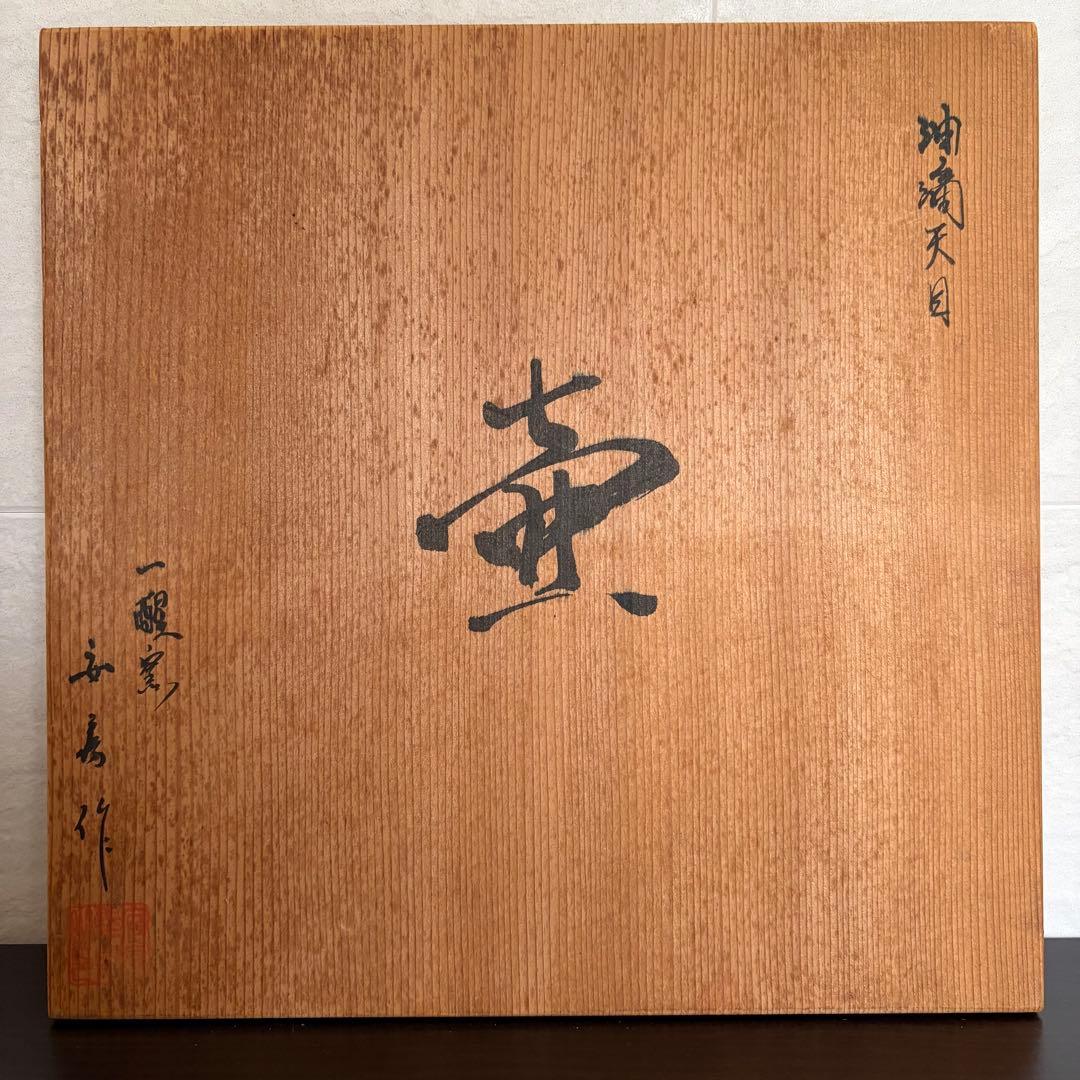 油滴天目
壷
一醒窯
安房作